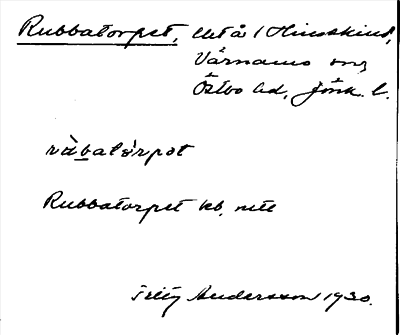 Rubbatorpet, Utå i Hinsekind,
Värnamo sn,
Östbo hd, Jönk. l.
ràbatårpət
Rubbatorpet kb, nut
Andersson 1930.